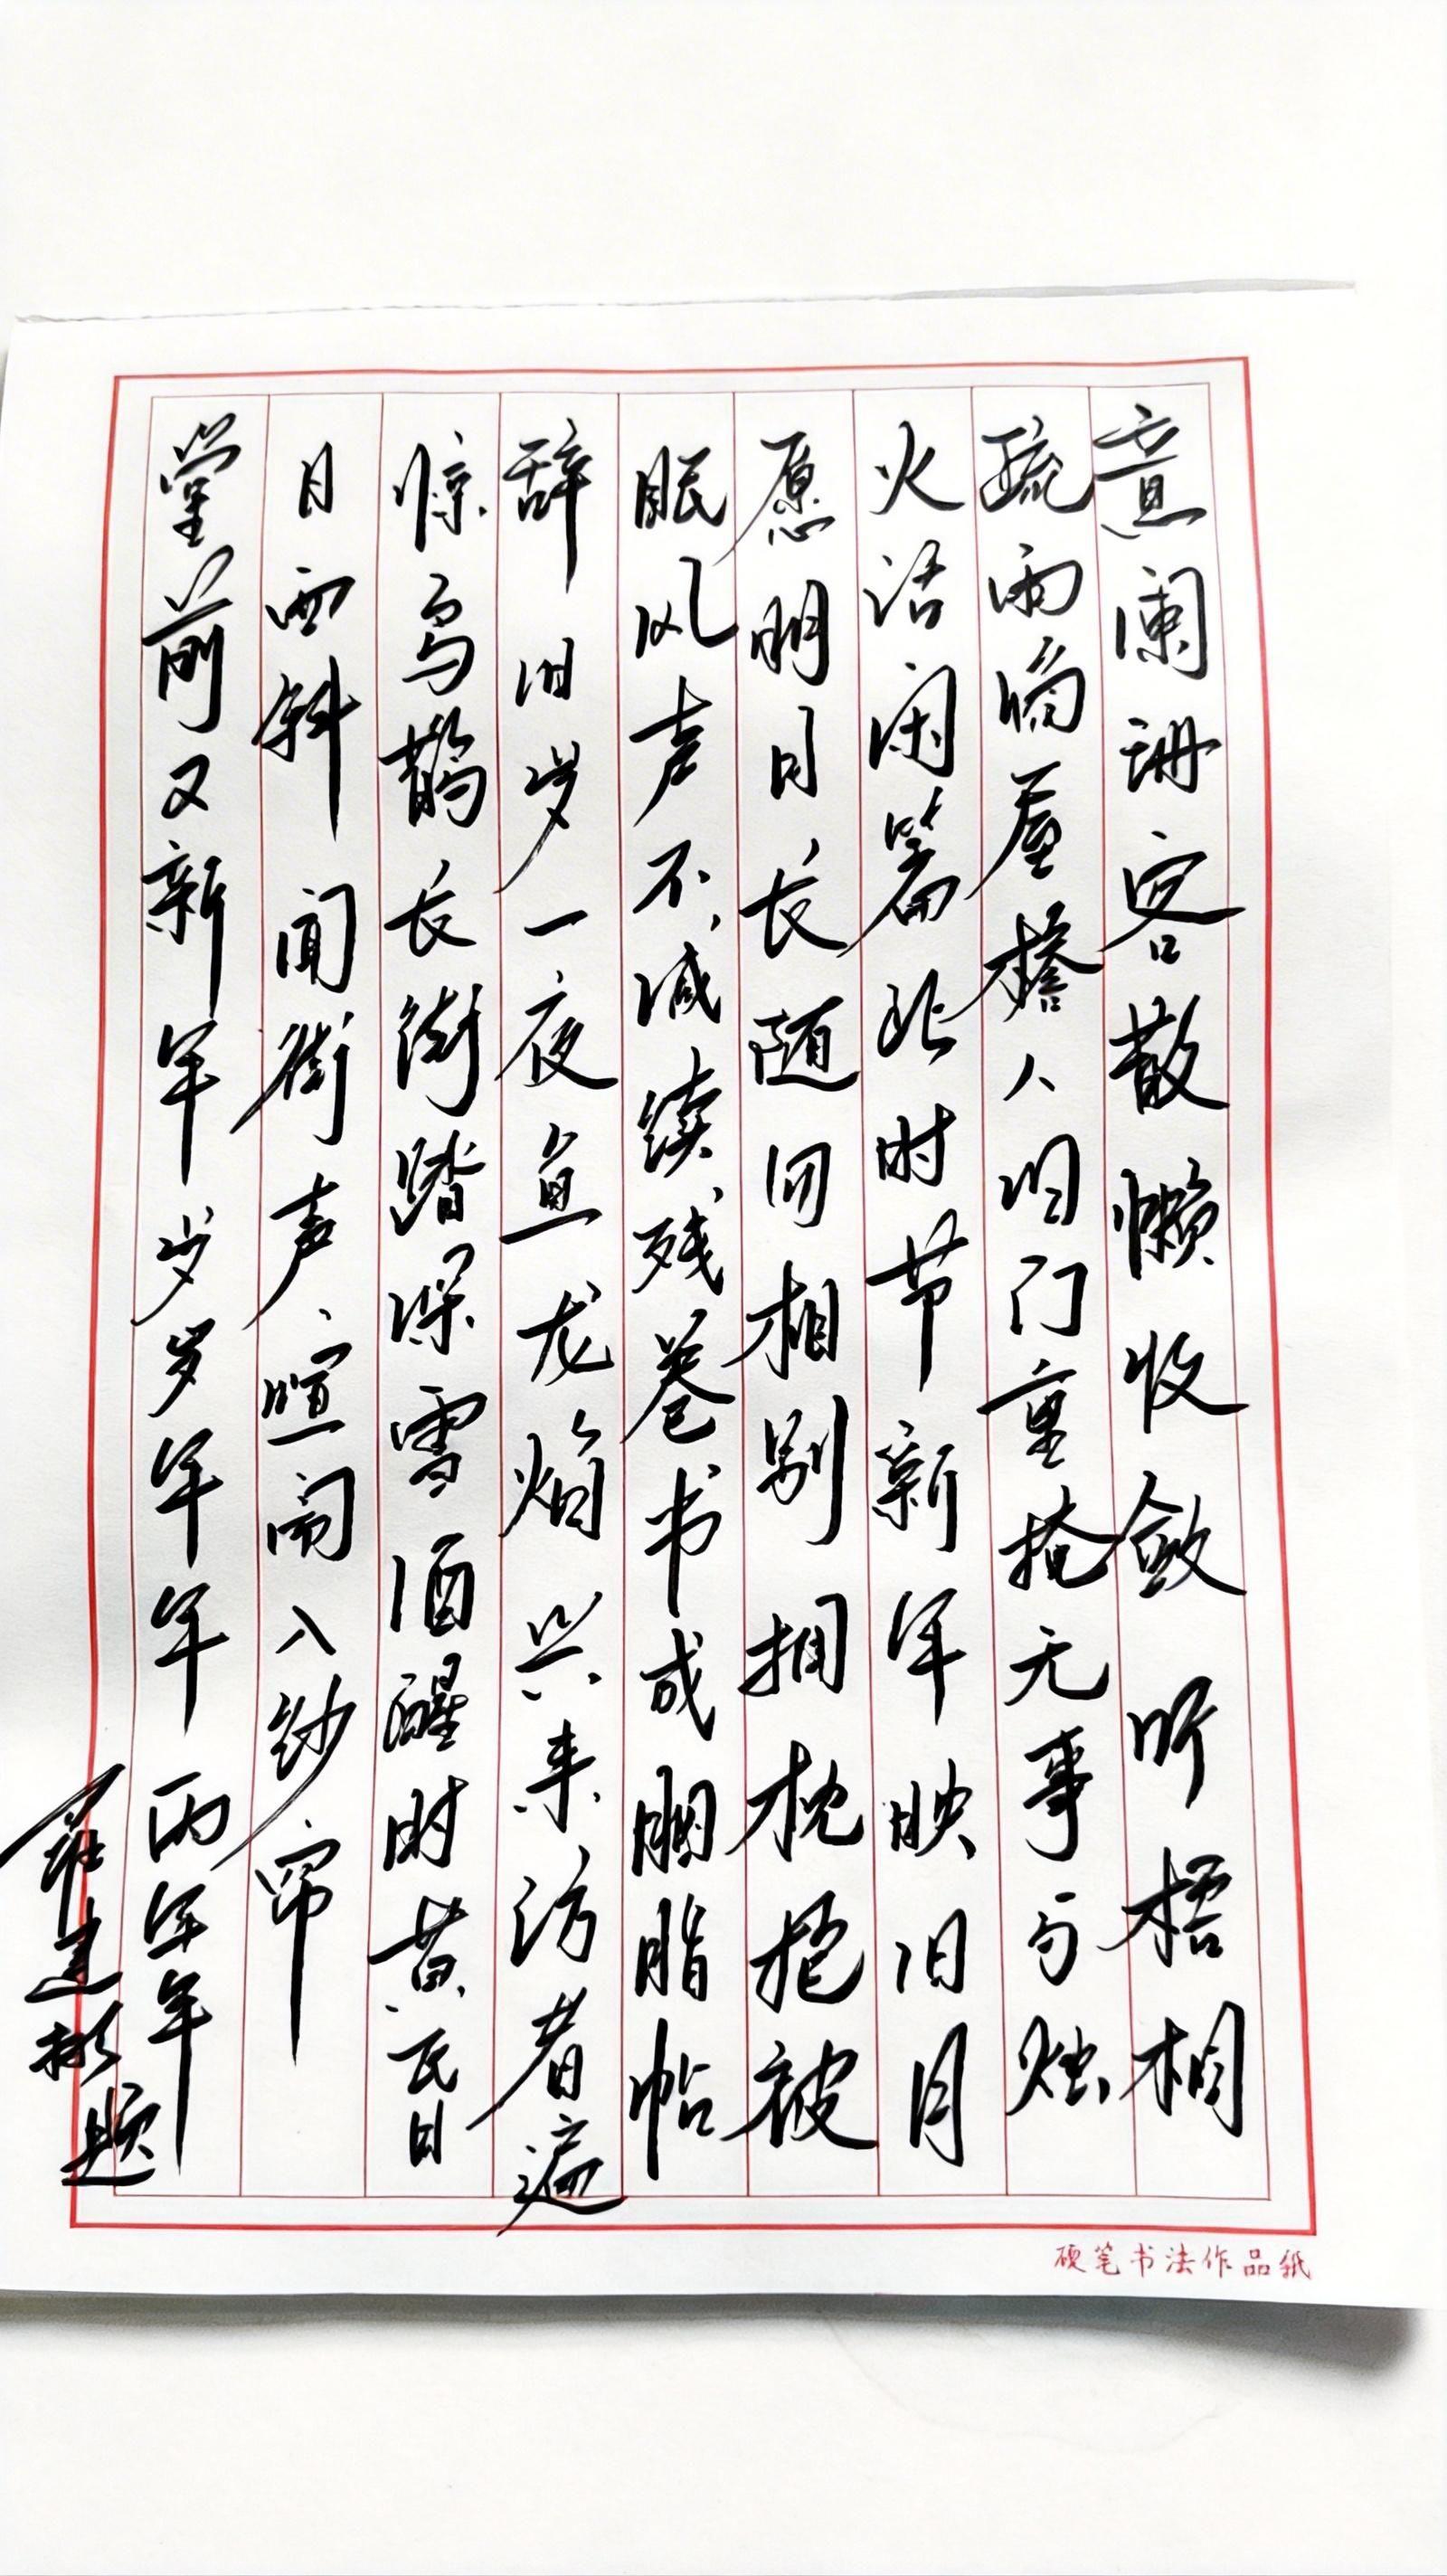 意阑珊客散懒收敛听梧桐
疏雨滴屋檐人归门重掩无事勺烛
火话闲篇此时节新年映旧月
愿明月长随回相别拥枕抱被
眠风声不减续残卷书成胭脂帖
辞旧岁一夜鱼龙焰兴来访者遍
惊乌鹊长街踏深雪酒醒时黄昏
日西斜闻街声喧闹入纱帘
堂前又新年岁岁年年两年年
建彬题
硬笔书法作品纸